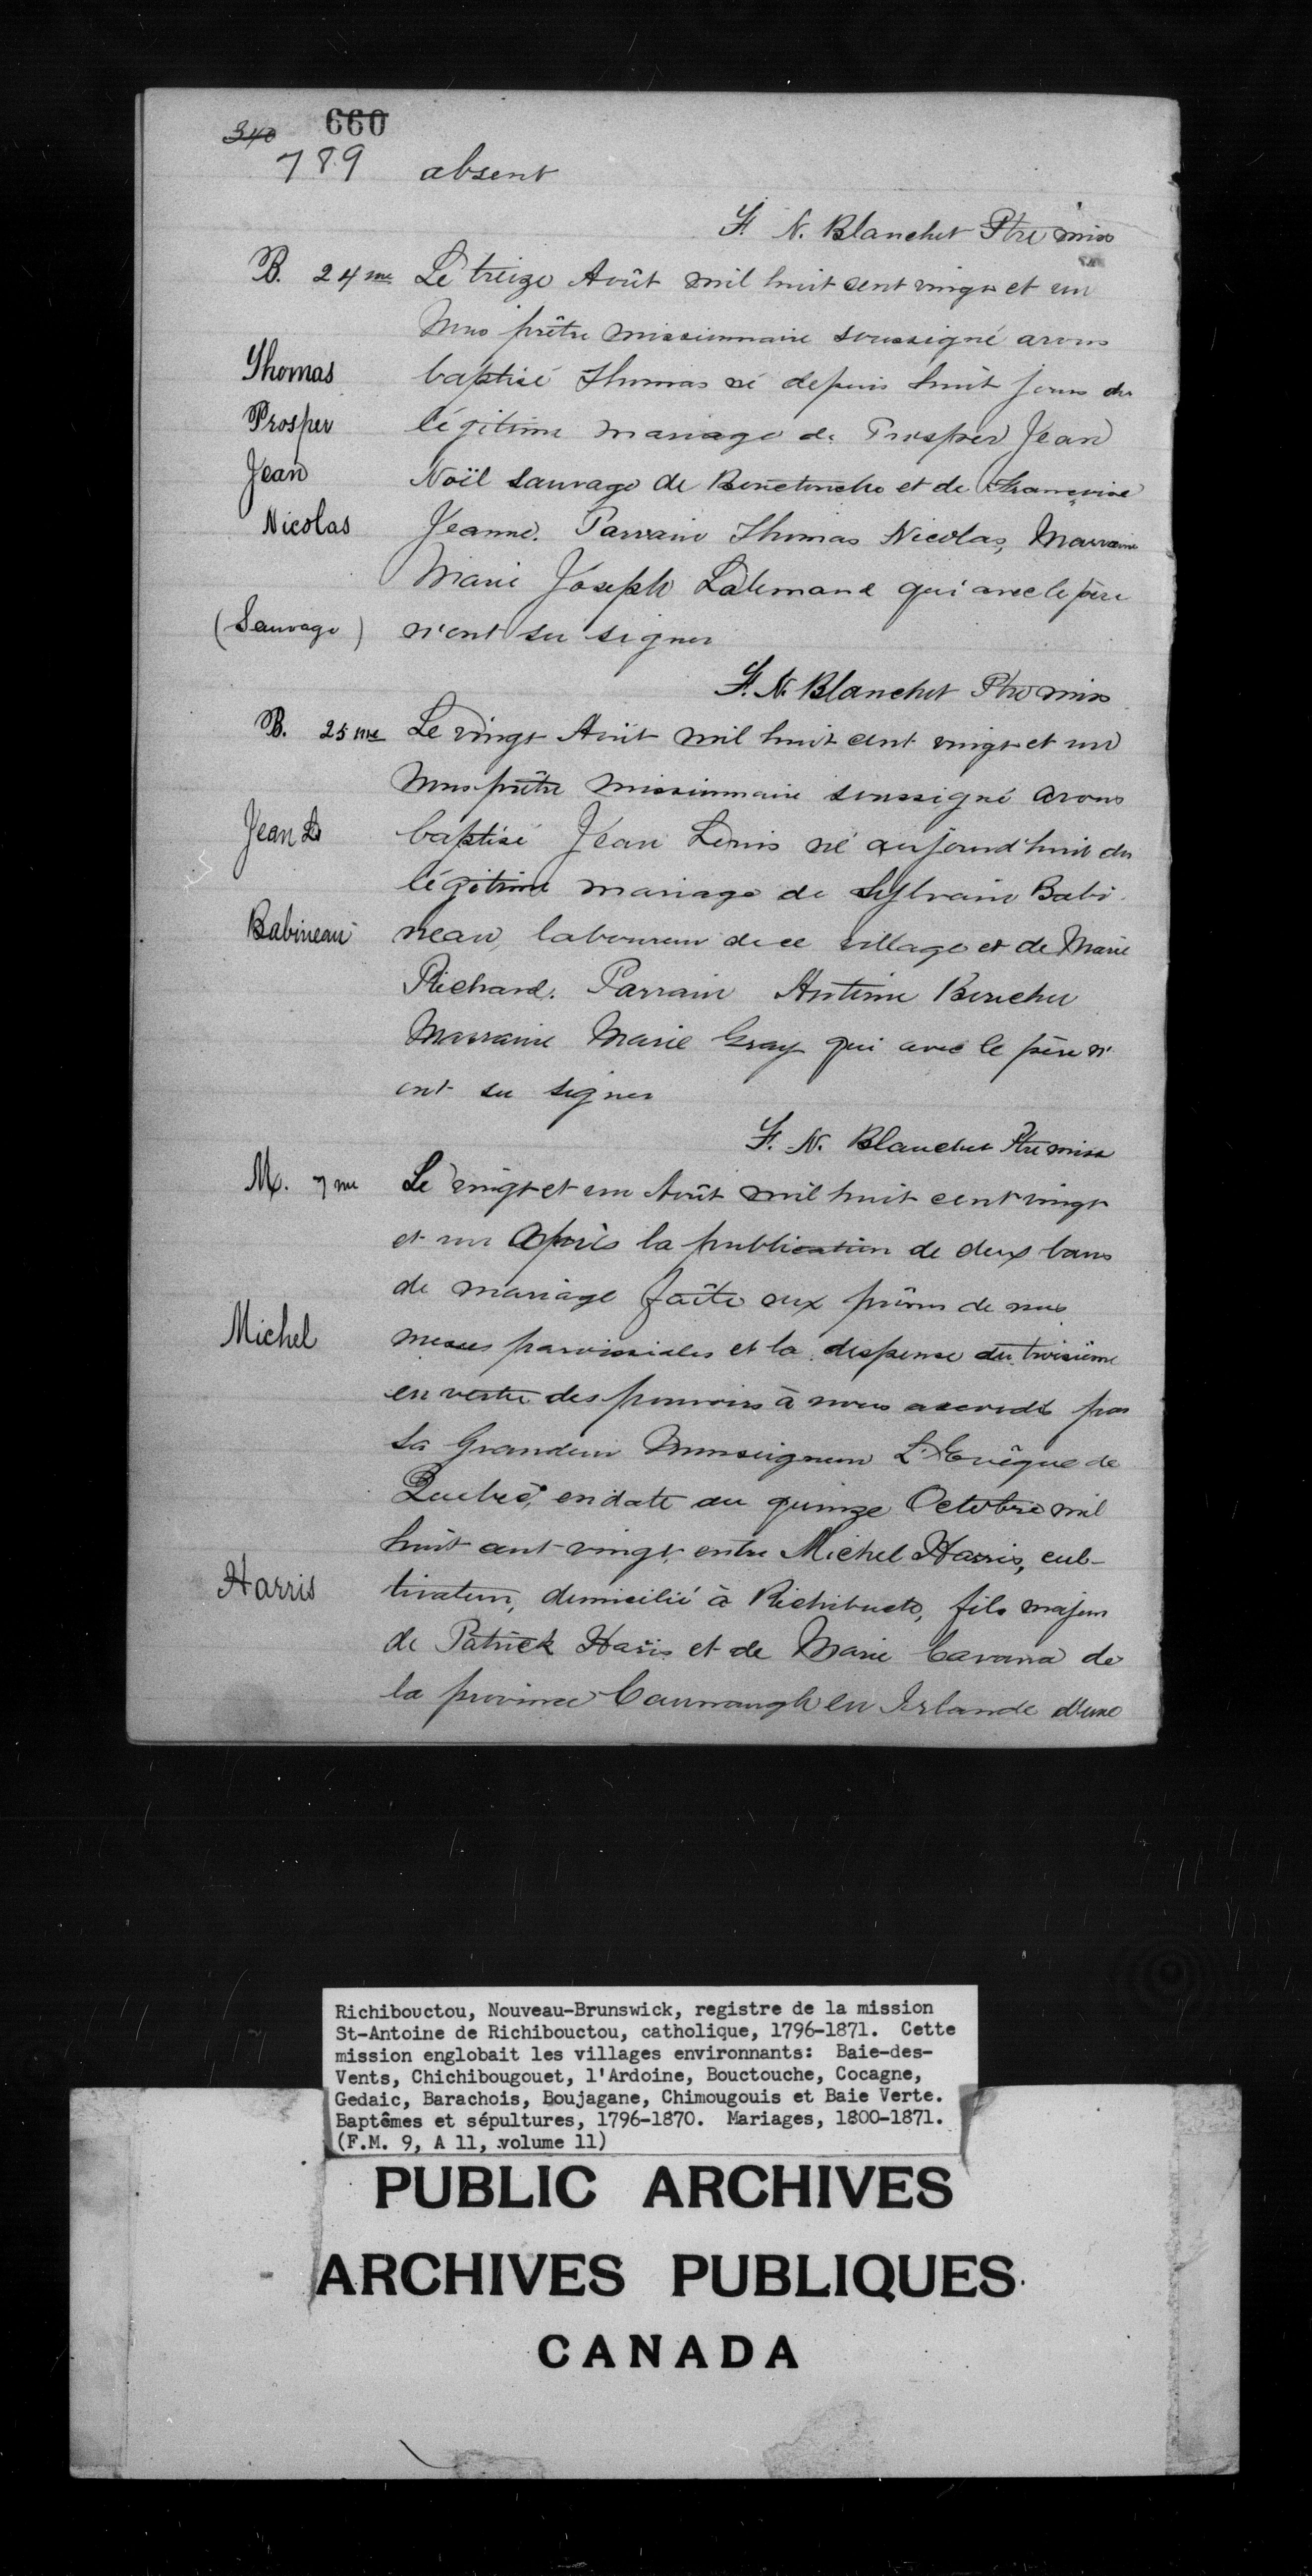 340 660
789 absent
F. N. Blanchet Ptre miss
B. 24me Le treize Août mil huit cent vingt et un
Nous prêtre missionnaire soussigné avons
Thomas baptisé Thomas né depuis huit jours du
Prosper légitime mariage de Prosper Jean
Jean Noël sauvage de Bouctouche et de Françoise
Nicolas Jeanne. Parrain Thomas Nicolas, Marraine
Marie Joseph Lalemand qui avec le père
(Sauvage) n'ont su signer
F. N. Blanchet Ptre miss
B. 25me Le vingt Août mil huit cent vingt et un
Nous prêtre missionnaire soussigné avons
Jean Ls baptisé Jean Louis né aujourd'huit du
légitime mariage de Sylvain Babi
Babineau neau, laboureur de ce village et de Marie
Richard. Parrain Antoine Boucher
Marraine Marie Gray qui avec le père n'
ont su signer
F. N. Blanchet Ptre miss
M. 7me Le vingt et un Août mil huit cent vingt
et un Après la publication de deux bans
de mariage faîte aux prônes de nos
Michel messes paroissiales et la dispense du troisième
en vertu des pouvoirs à nous accordés par
Sa Grandeur Monseigneur L'Evêque de
Quebéc, en date du quinze Octobre mil
huit cent vingt, entre Michel Harris, cul-
Harris tivateur, domicilié à Richibucto, fils majeur
de Patrick Harris et de Marie Cavana de
la province Caunaugh en Irlande d'une
Richibouctou, Nouveau-Brunswick, registre de la mission
St-Antoine de Richibouctou, catholique, 1796-1871. Cette
mission englobait les villages environnants: Baie-des-
Vents, Chichibougouet, l'Ardoine, Bouctouche, Cocagne,
Gedaic, Barachois, Boujagane, Chimougouis et Baie Verte.
Baptêmes et sépultures, 1796-1870. Mariages, 1800-1871.
(F.M. 9, A 11, volume 11)
PUBLIC ARCHIVES
ARCHIVES PUBLIQUES
CANADA